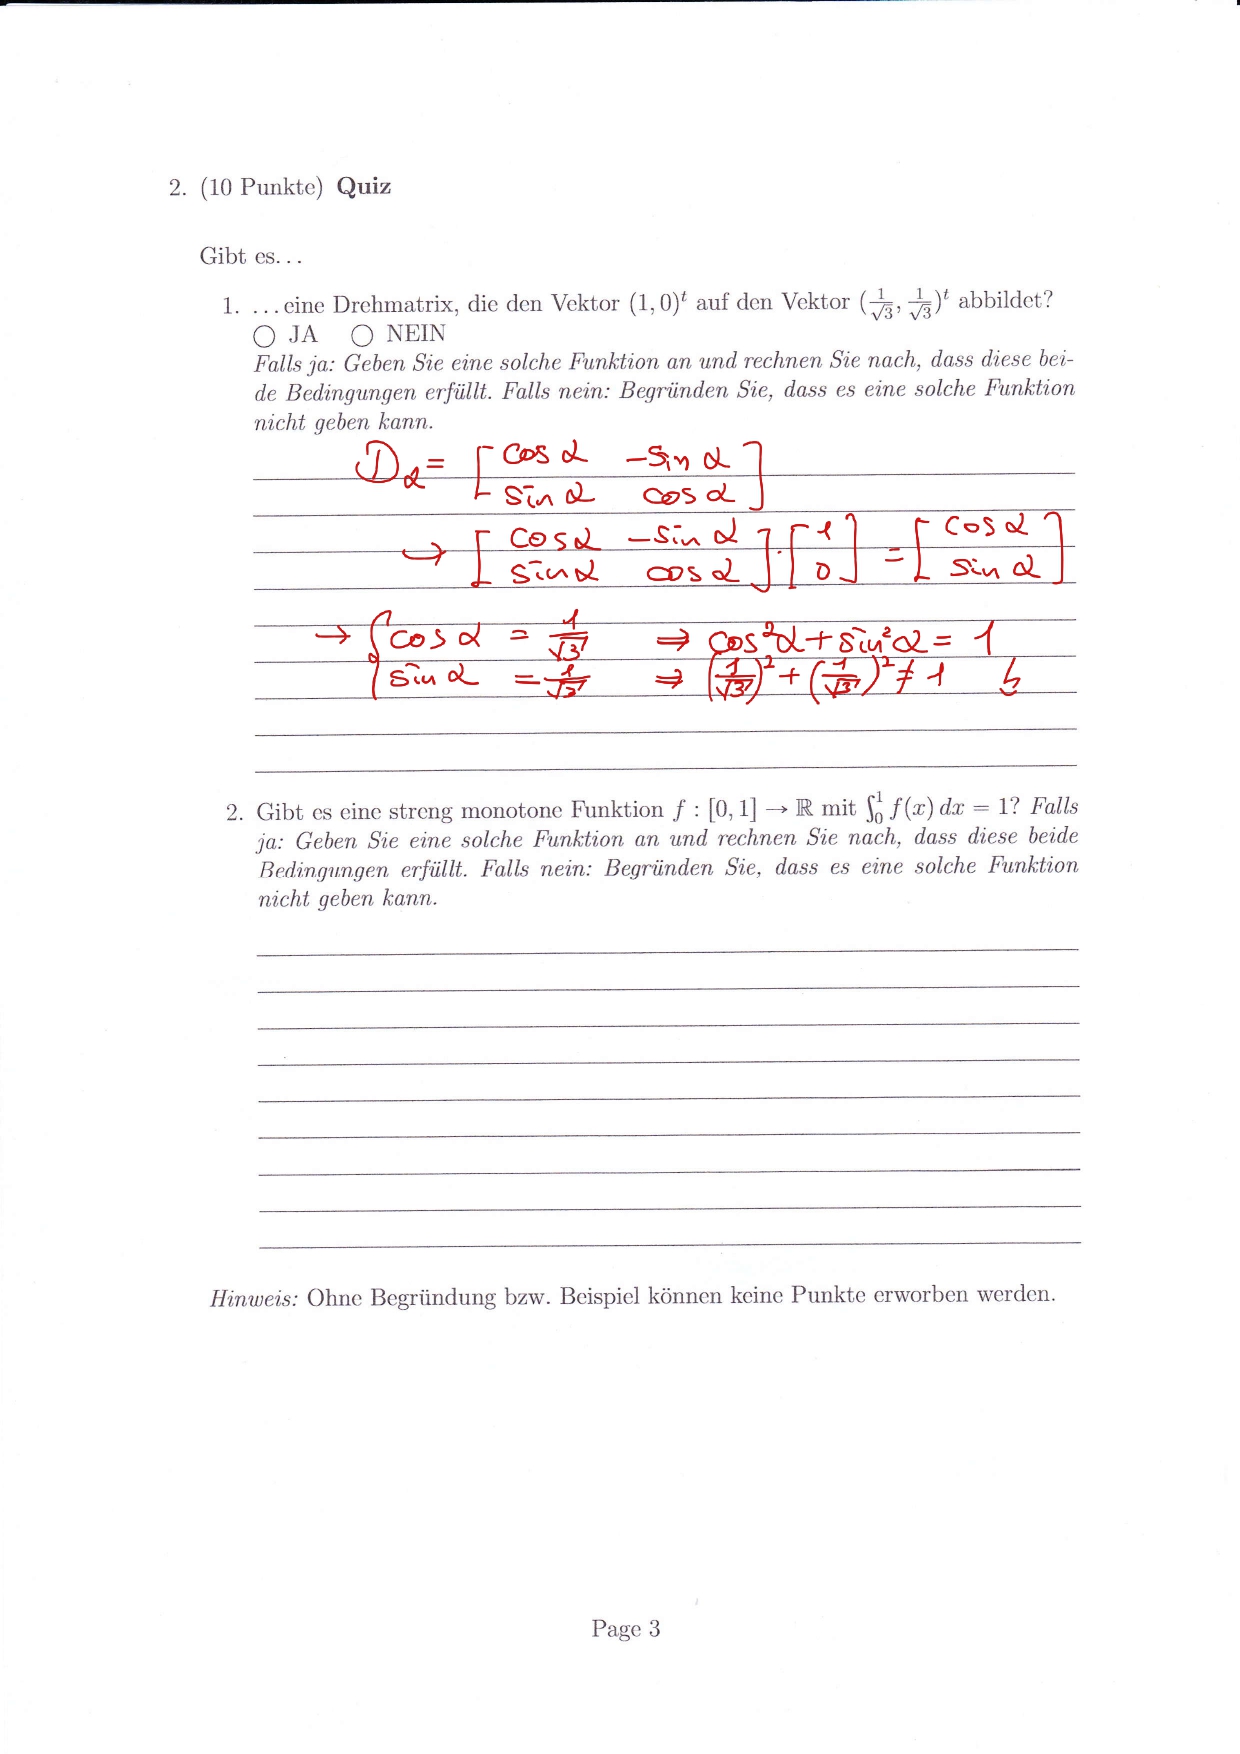 2. (10 Punkte) Quiz
Gibt es...
1. ...eine Drehmatrix, die den Vektor (1, 0)^t auf den Vektor (1/√3, 1/√3)^t abbildet?
○ JA ○ NEIN
Falls ja: Geben Sie eine solche Funktion an und rechnen Sie nach, dass diese bei-
de Bedingungen erfüllt. Falls nein: Begründen Sie, dass es eine solche Funktion
nicht geben kann.
D_α = [cos α  -sin α
sin α  cos α]
→ [cos α  -sin α
sin α  cos α] · [1
0] = [cos α
sin α]
→ { cos α = 1/√3 ⇒ cos²α + sin²α = 1
sin α = 1/√3 ⇒ (1/√3)² + (1/√3)² ≠ 1 ↯
2. Gibt es eine streng monotone Funktion f : [0, 1] → ℝ mit ∫₀¹ f(x) dx = 1? Falls
ja: Geben Sie eine solche Funktion an und rechnen Sie nach, dass diese beide
Bedingungen erfüllt. Falls nein: Begründen Sie, dass es eine solche Funktion
nicht geben kann.
Hinweis: Ohne Begründung bzw. Beispiel können keine Punkte erworben werden.
Page 3